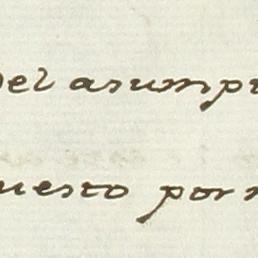 del asump
uesto por